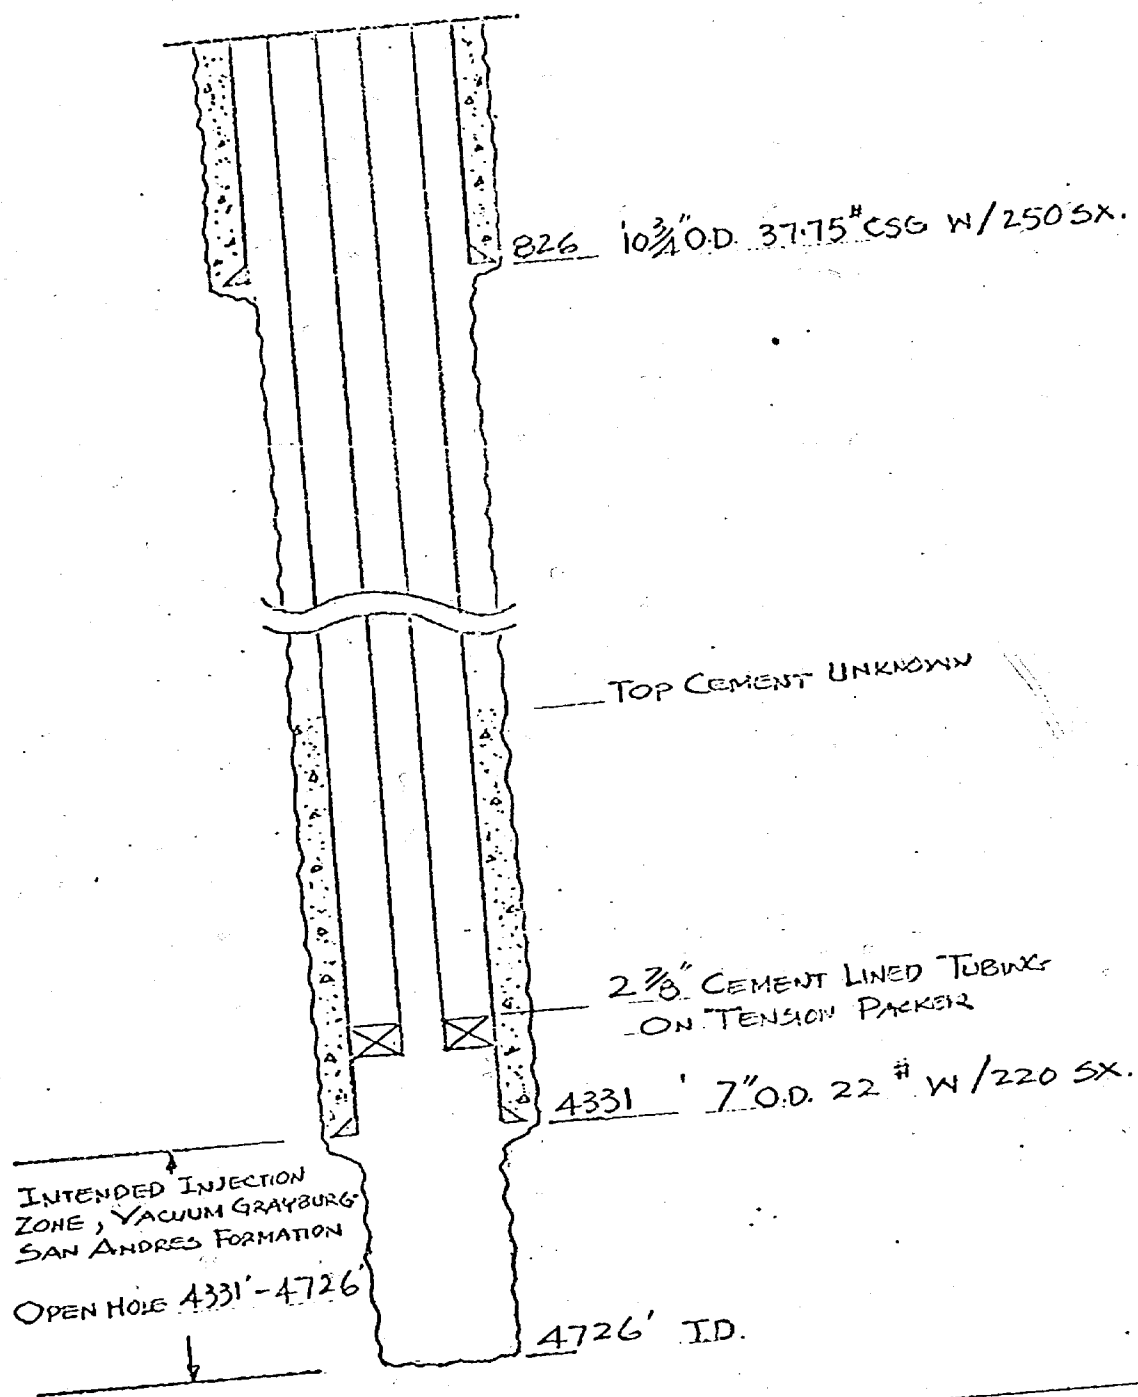 826 10 3/4" O.D. 37.75# CSG W/250 SX.
TOP CEMENT UNKNOWN
2 7/8" CEMENT LINED TUBING
ON TENSION PACKER
4331 ' 7" O.D. 22 # W/220 SX.
INTENDED INJECTION
ZONE, VACUUM GRAYBURG-
SAN ANDRES FORMATION
OPEN HOLE 4331'-4726'
4726' T.D.